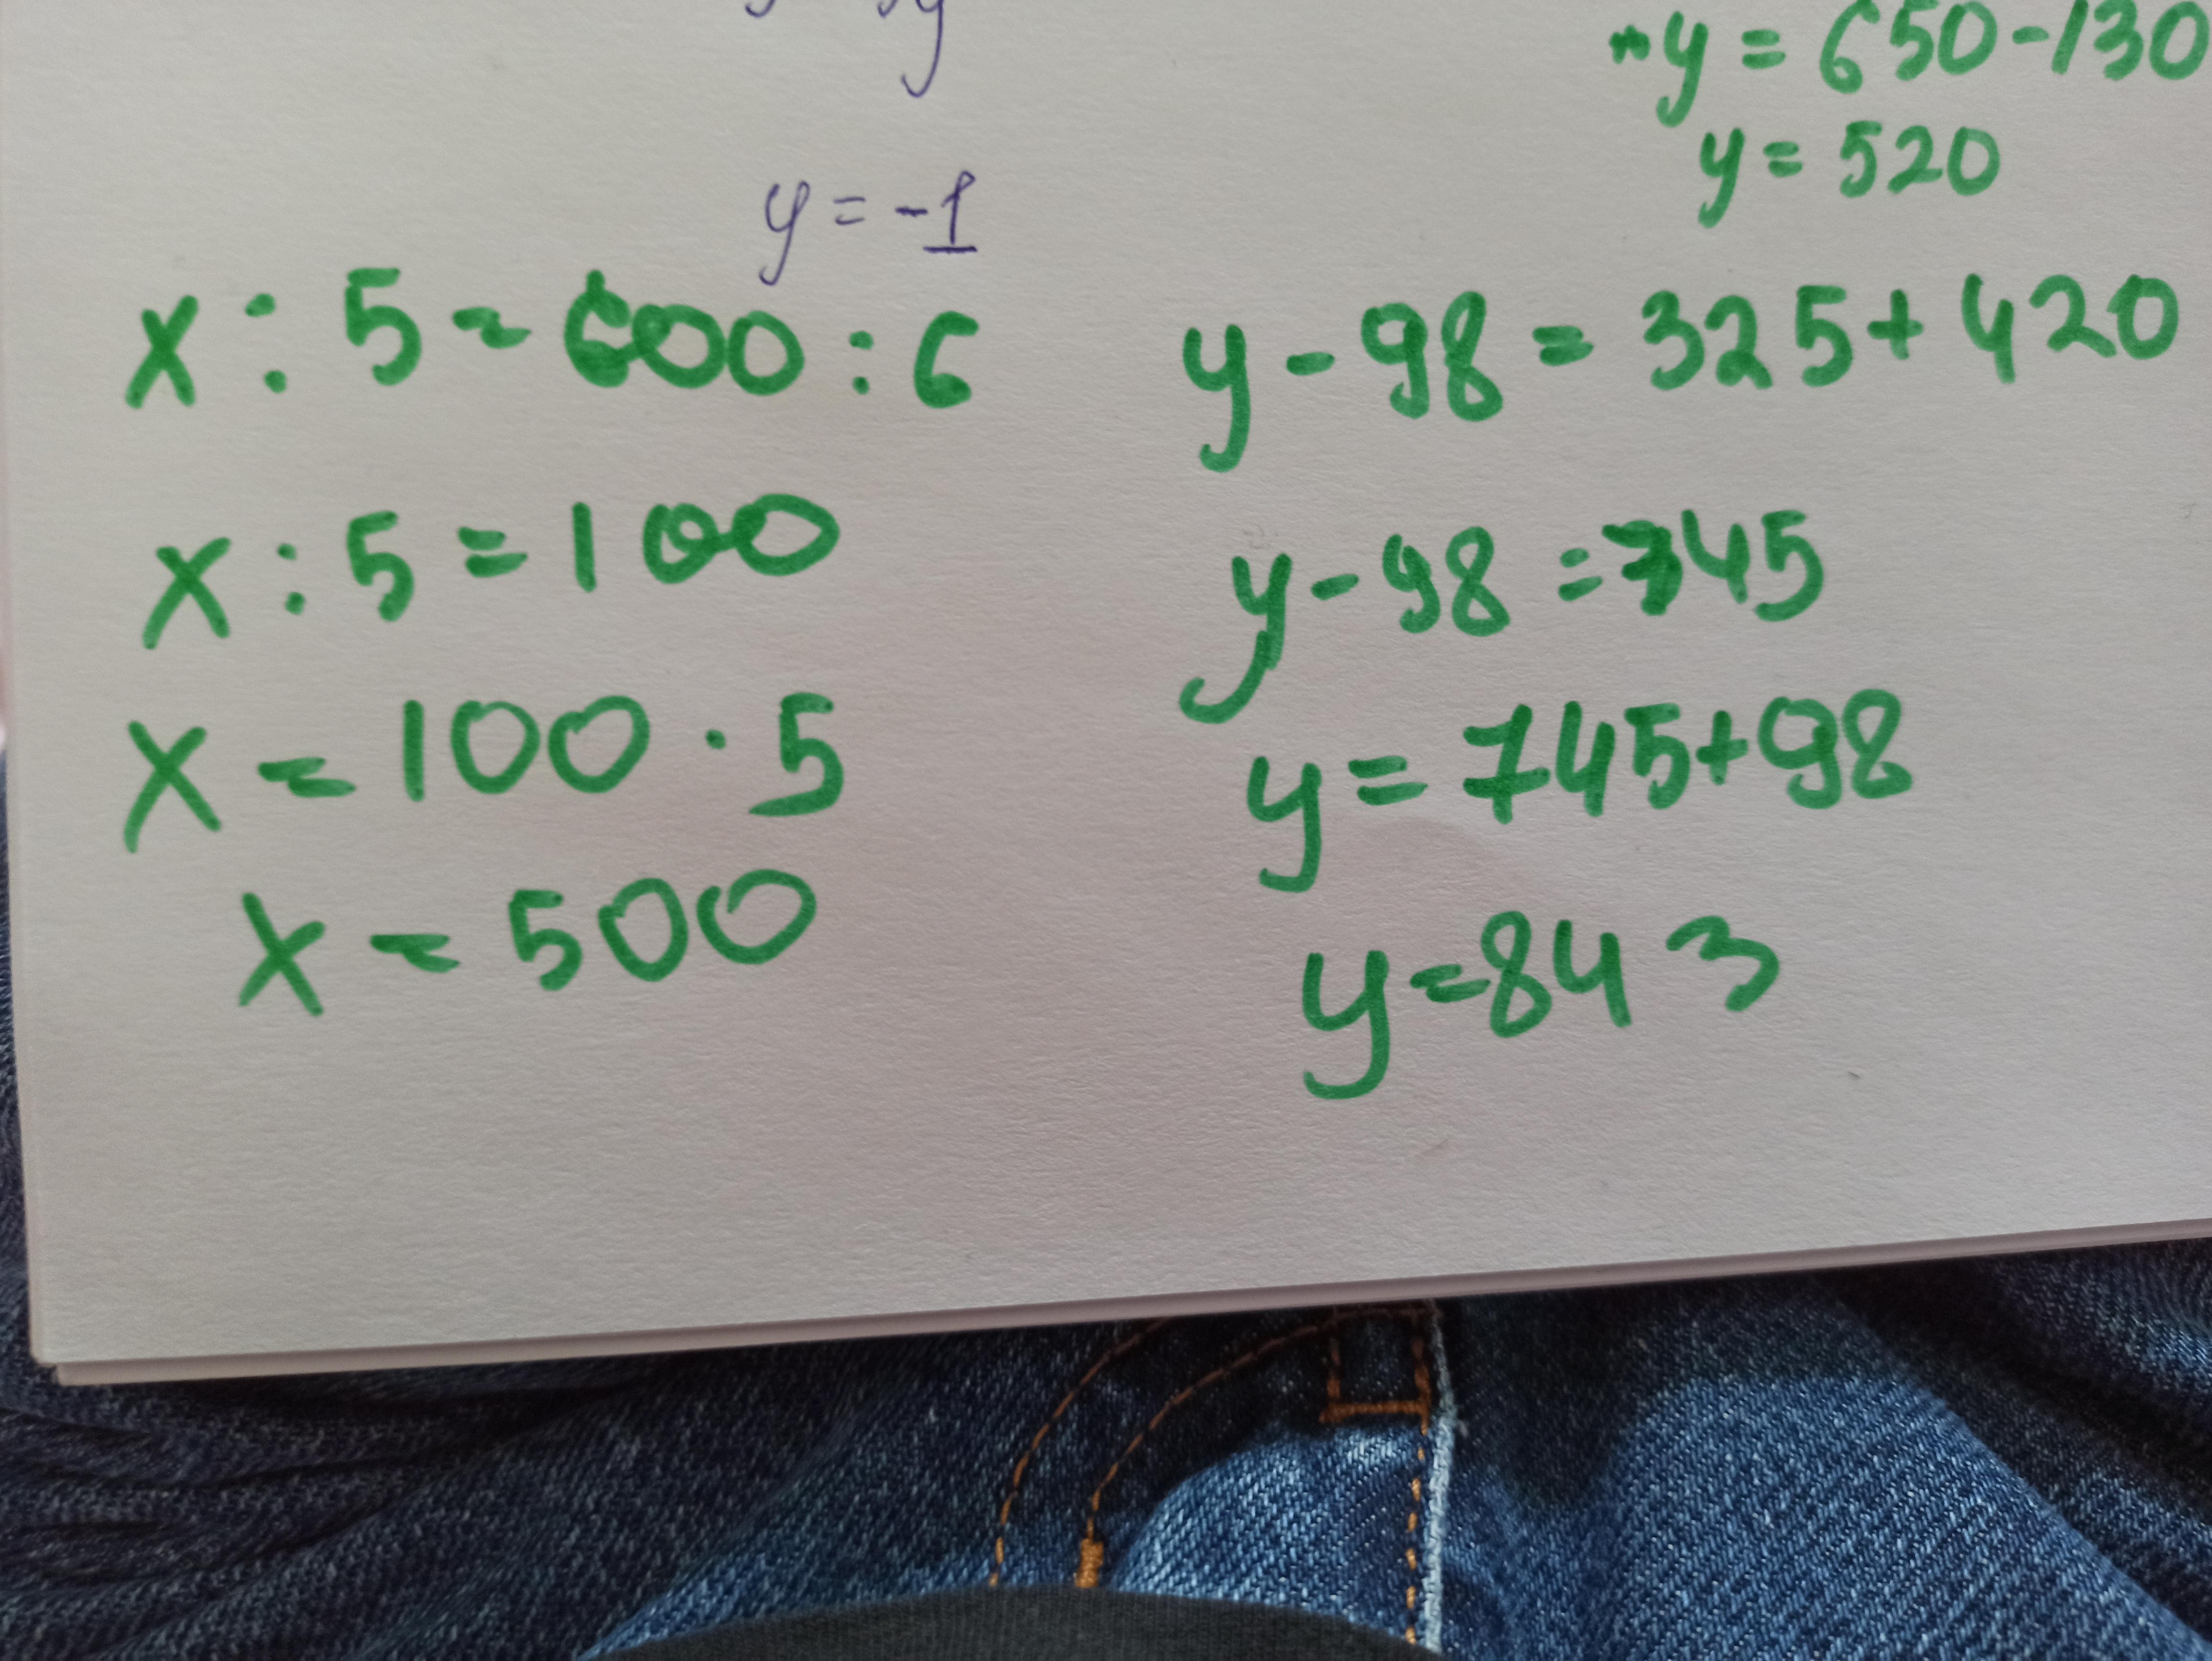 y = 650-130
y = 520
y = -1
x : 5 = 600 : 6
x : 5 = 100
x = 100 · 5
x = 500
y - 98 = 325 + 420
y - 98 = 745
y = 745+98
y = 843